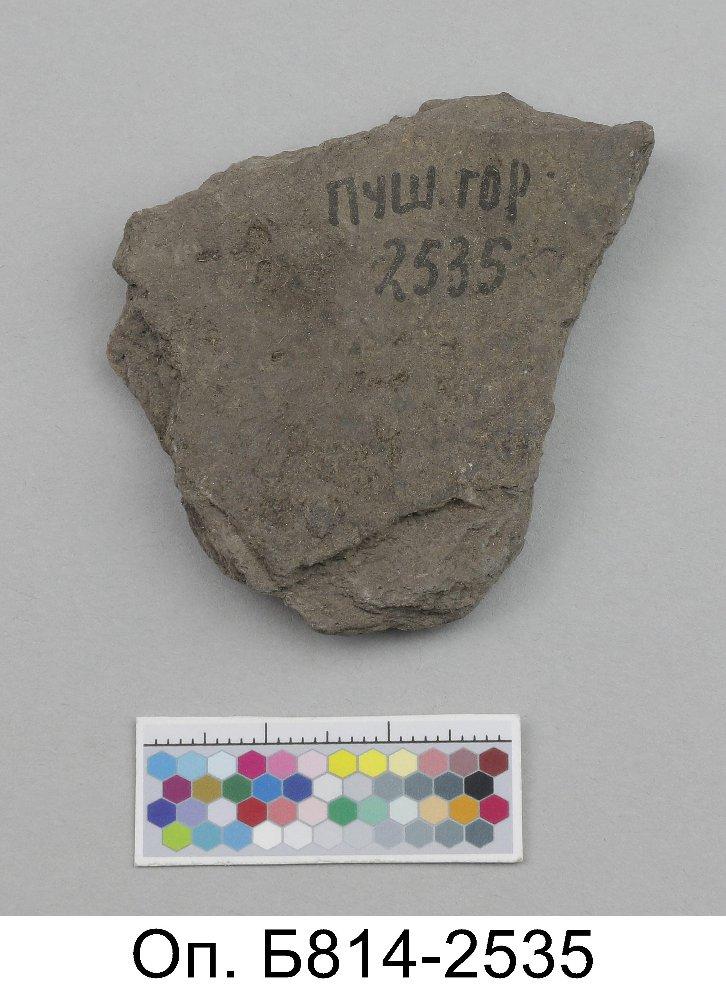 ПУШ.ГОР.
2535
Оп. Б814-2535